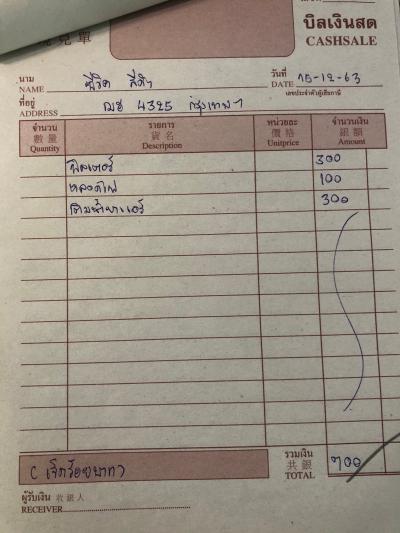 現兌單
บิลเงินสด
CASHSALE
นาม
NAME
วันที่
DATE 15-12-63
เลขประจำตัวผู้เสียภาษี
ที่อยู่
ADDRESS ฌฮ 4325 กรุงเทพฯ
จำนวน รายการ หน่วยละ จำนวนเงิน
數量 貨名 價格 銀額
Quantity Description Unitprice Amount
ฟิลเตอร์ 300
หลอดไฟ 100
เติมน้ำยาแอร์ 300
(เจ็ดร้อยบาท)
รวมเงิน
共銀
TOTAL 700
ผู้รับเงิน 收銀人
RECEIVER